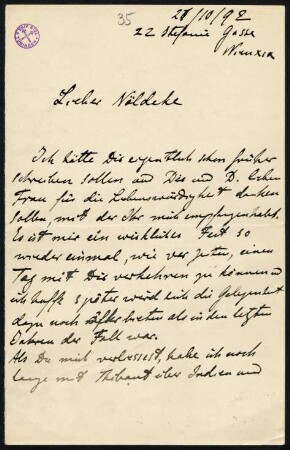 35
28/10/92
22 Stefanie Gasse
Wien XIX
Lieber Nöldeke
Ich hätte Dir eigentlich schon früher
schreiben sollen und Dir und D. lieben
Frau für die Liebenswürdigkeit danken
sollen, mit der Ihr mich empfangen habt.
Es ist mir ein wirkliches Fest so
wieder einmal, wie vor Zeiten, einen
Tag mit Dir verkehren zu können und
ich hoffe später wird sich die Gelegenheit
dazu noch öfter bieten als in den letzten
Jahren der Fall war.
Als Du mich verliessest, habe ich noch
lange mit Thibaut über Indien und